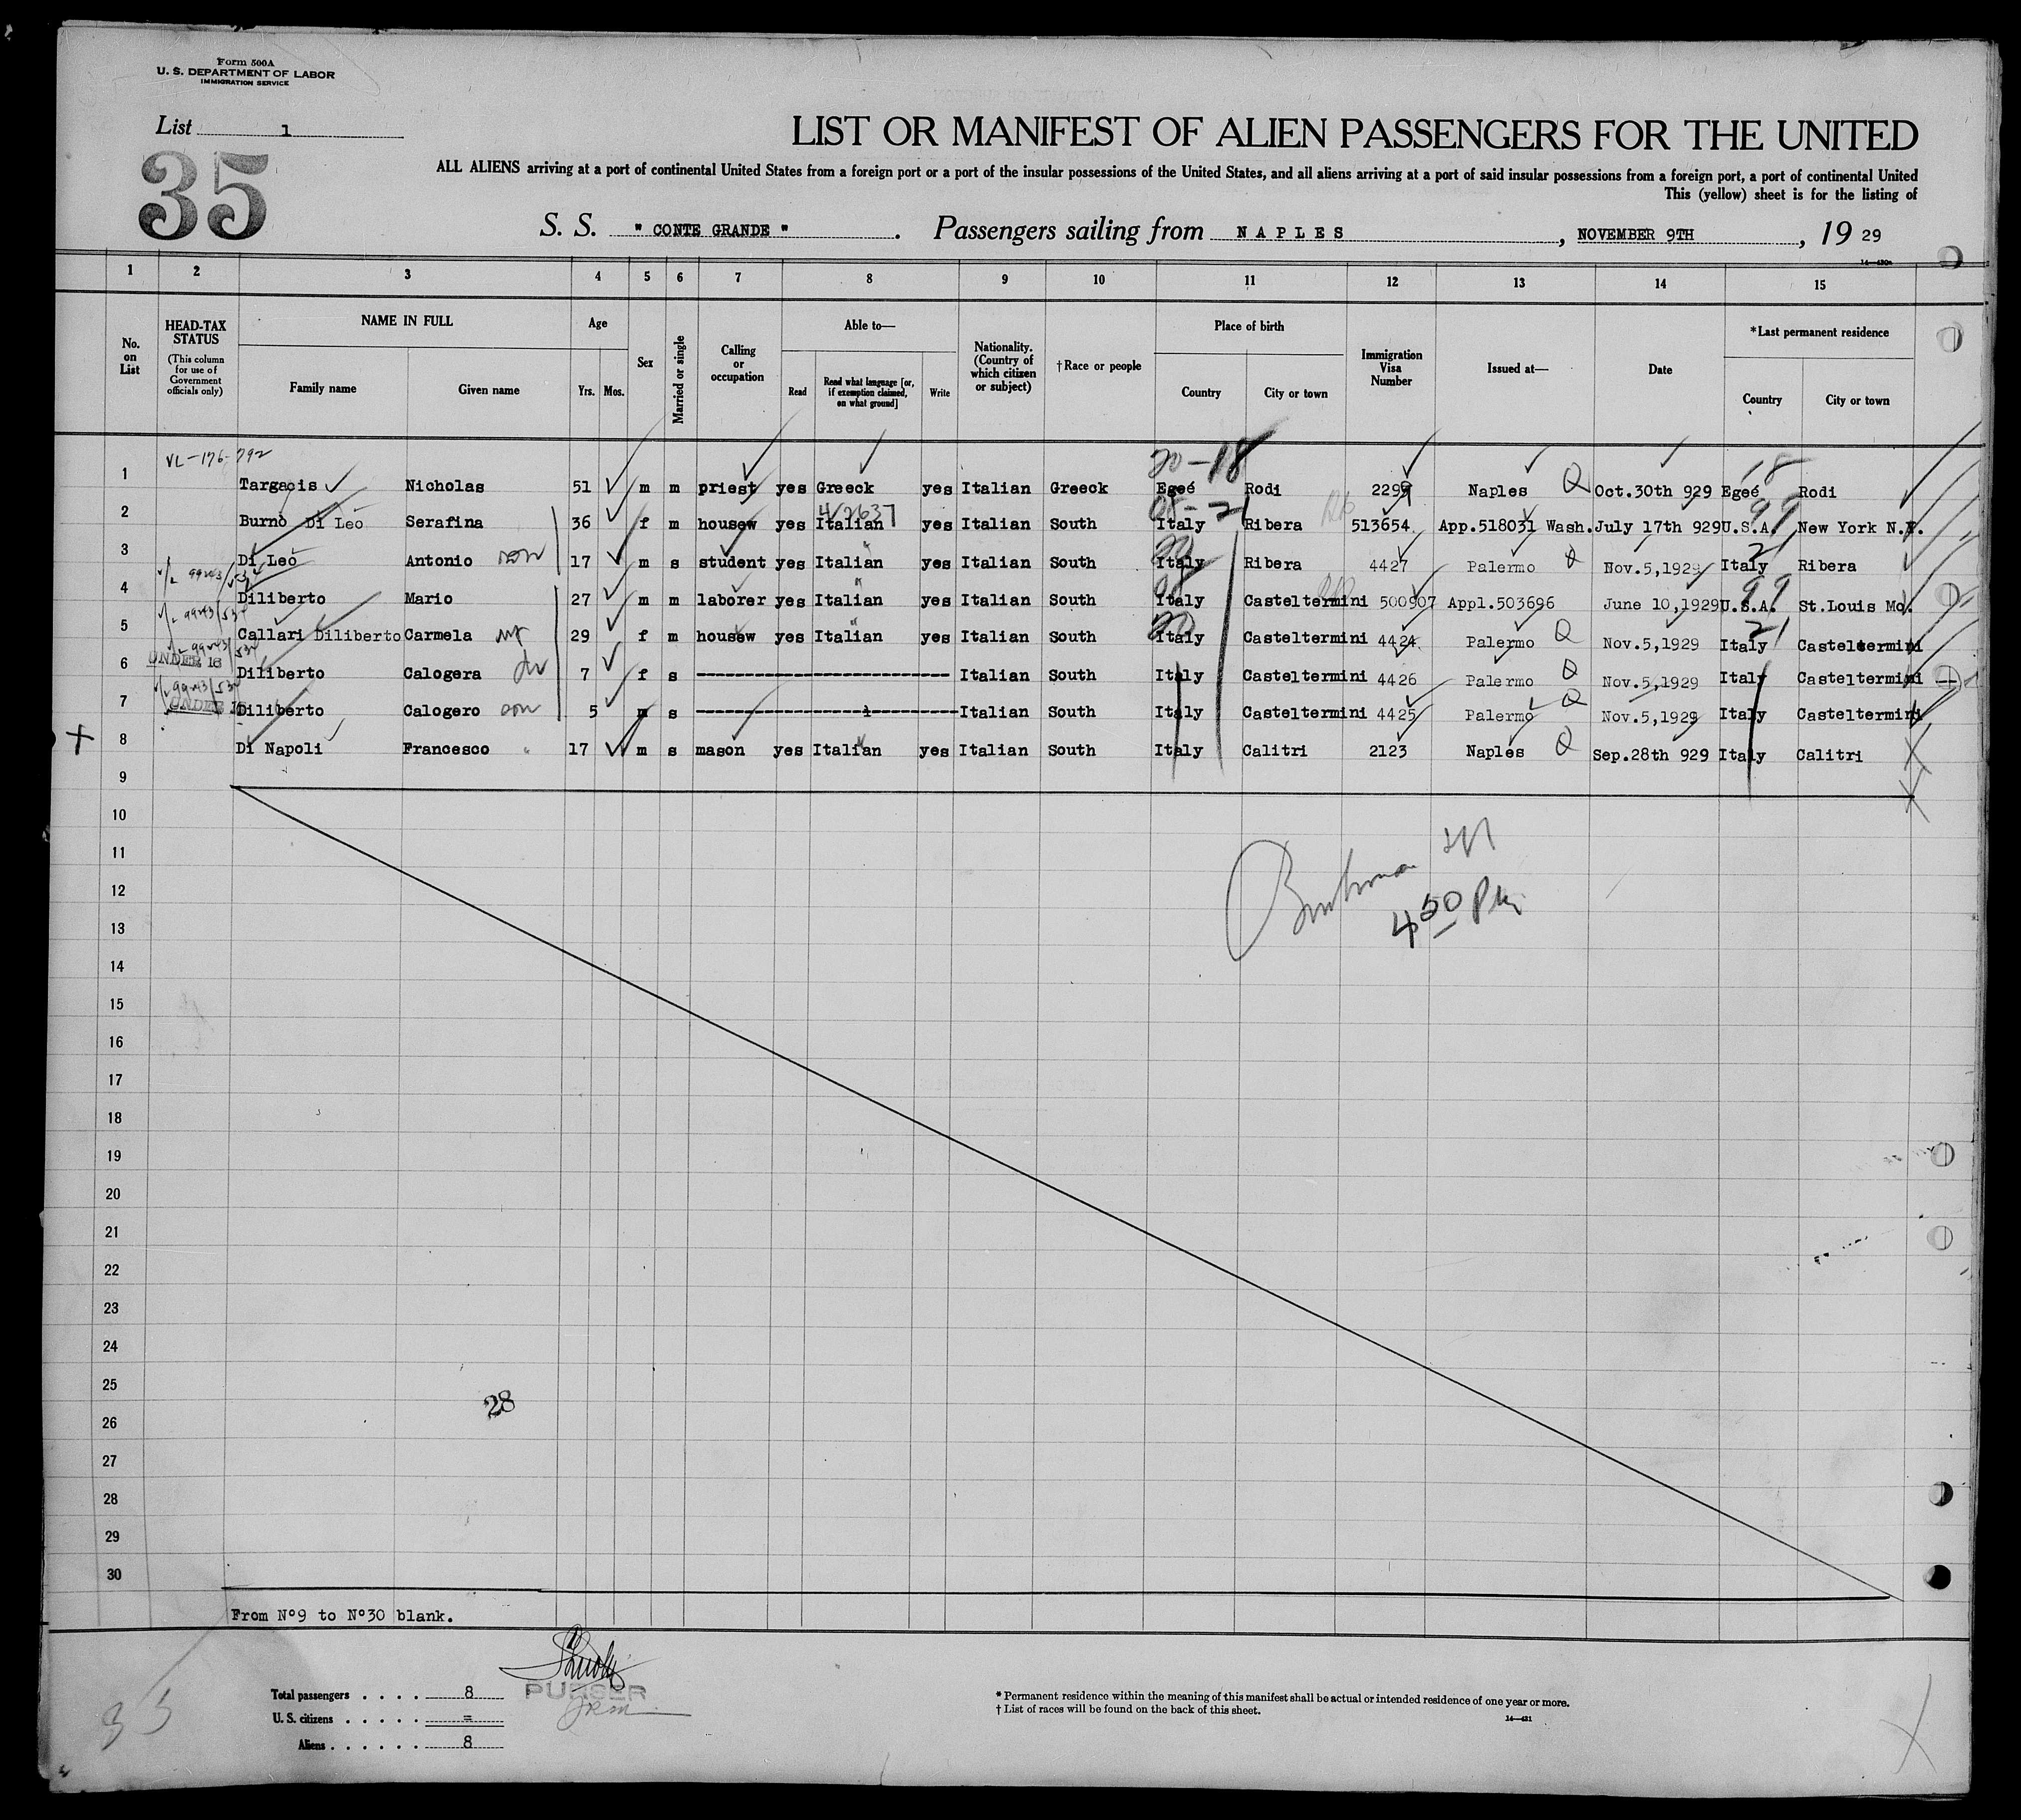 Form 500A
U. S. DEPARTMENT OF LABOR
IMMIGRATION SERVICE
List 1
35
LIST OR MANIFEST OF ALIEN PASSENGERS FOR THE UNITED
ALL ALIENS arriving at a port of continental United States from a foreign port or a port of the insular possessions of the United States, and all aliens arriving at a port of said insular possessions from a foreign port, a port of continental United
This (yellow) sheet is for the listing of
S. S. " CONTE GRANDE " . Passengers sailing from NAPLES , NOVEMBER 9TH , 19 29
1 2 3 4 5 6 7 8 9 10 11 12 13 14 15
No. on List
HEAD-TAX STATUS (This column for use of Government officials only)
NAME IN FULL
Family name Given name
Age
Yrs. Mos.
Sex
Married or single
Calling or occupation
Able to—
Read Read what language [or, if exemption claimed, on what ground] Write
Nationality. (Country of which citizen or subject)
†Race or people
Place of birth
Country City or town
Immigration Visa Number
Issued at—
Date
*Last permanent residence
Country City or town
VL-176-792
20-18 18
1 Targacis Nicholas 51 m m priest yes Greeck yes Italian Greeck Egeé Rodi 2299 Naples Q Oct.30th 929 Egeé Rodi
42637 99
2 Burno Di Leo Serafina 36 f m housew yes Italian yes Italian South Italy Ribera 513654 App.518031 Wash. July 17th 929 U.S.A. New York N.Y.
3 Di Leo Antonio son 17 m s student yes Italian yes Italian South Italy Ribera 4427 Palermo Nov.5,1929 Italy Ribera
99
4 Diliberto Mario 27 m m laborer yes Italian yes Italian South Italy Casteltermini 500907 Appl.503696 June 10,1929 U.S.A. St.Louis Mo.
5 Callari Diliberto Carmela wf 29 f m housew yes Italian yes Italian South Italy Casteltermini 4424 Palermo Q Nov.5,1929 Italy Casteltermini
UNDER 16
6 Diliberto Calogera 7 f s Italian South Italy Casteltermini 4426 Palermo Q Nov.5,1929 Italy Casteltermini
UNDER 16
7 Diliberto Calogero son 5 m s Italian South Italy Casteltermini 4425 Palermo Q Nov.5,1929 Italy Casteltermini
8 Di Napoli Francesco 17 m s mason yes Italian yes Italian South Italy Calitri 2123 Naples Q Sep.28th 929 Italy Calitri
9
10
11
12
4 50 Pm
13
14
15
16
17
18
19
20
21
22
23
24
25
28
26
27
28
29
30
From Nº9 to Nº30 blank.
PURSER
Total passengers . . . . 8
U. S. citizens . . . . . =
Aliens . . . . . . 8
35
* Permanent residence within the meaning of this manifest shall be actual or intended residence of one year or more.
† List of races will be found on the back of this sheet.
14—431